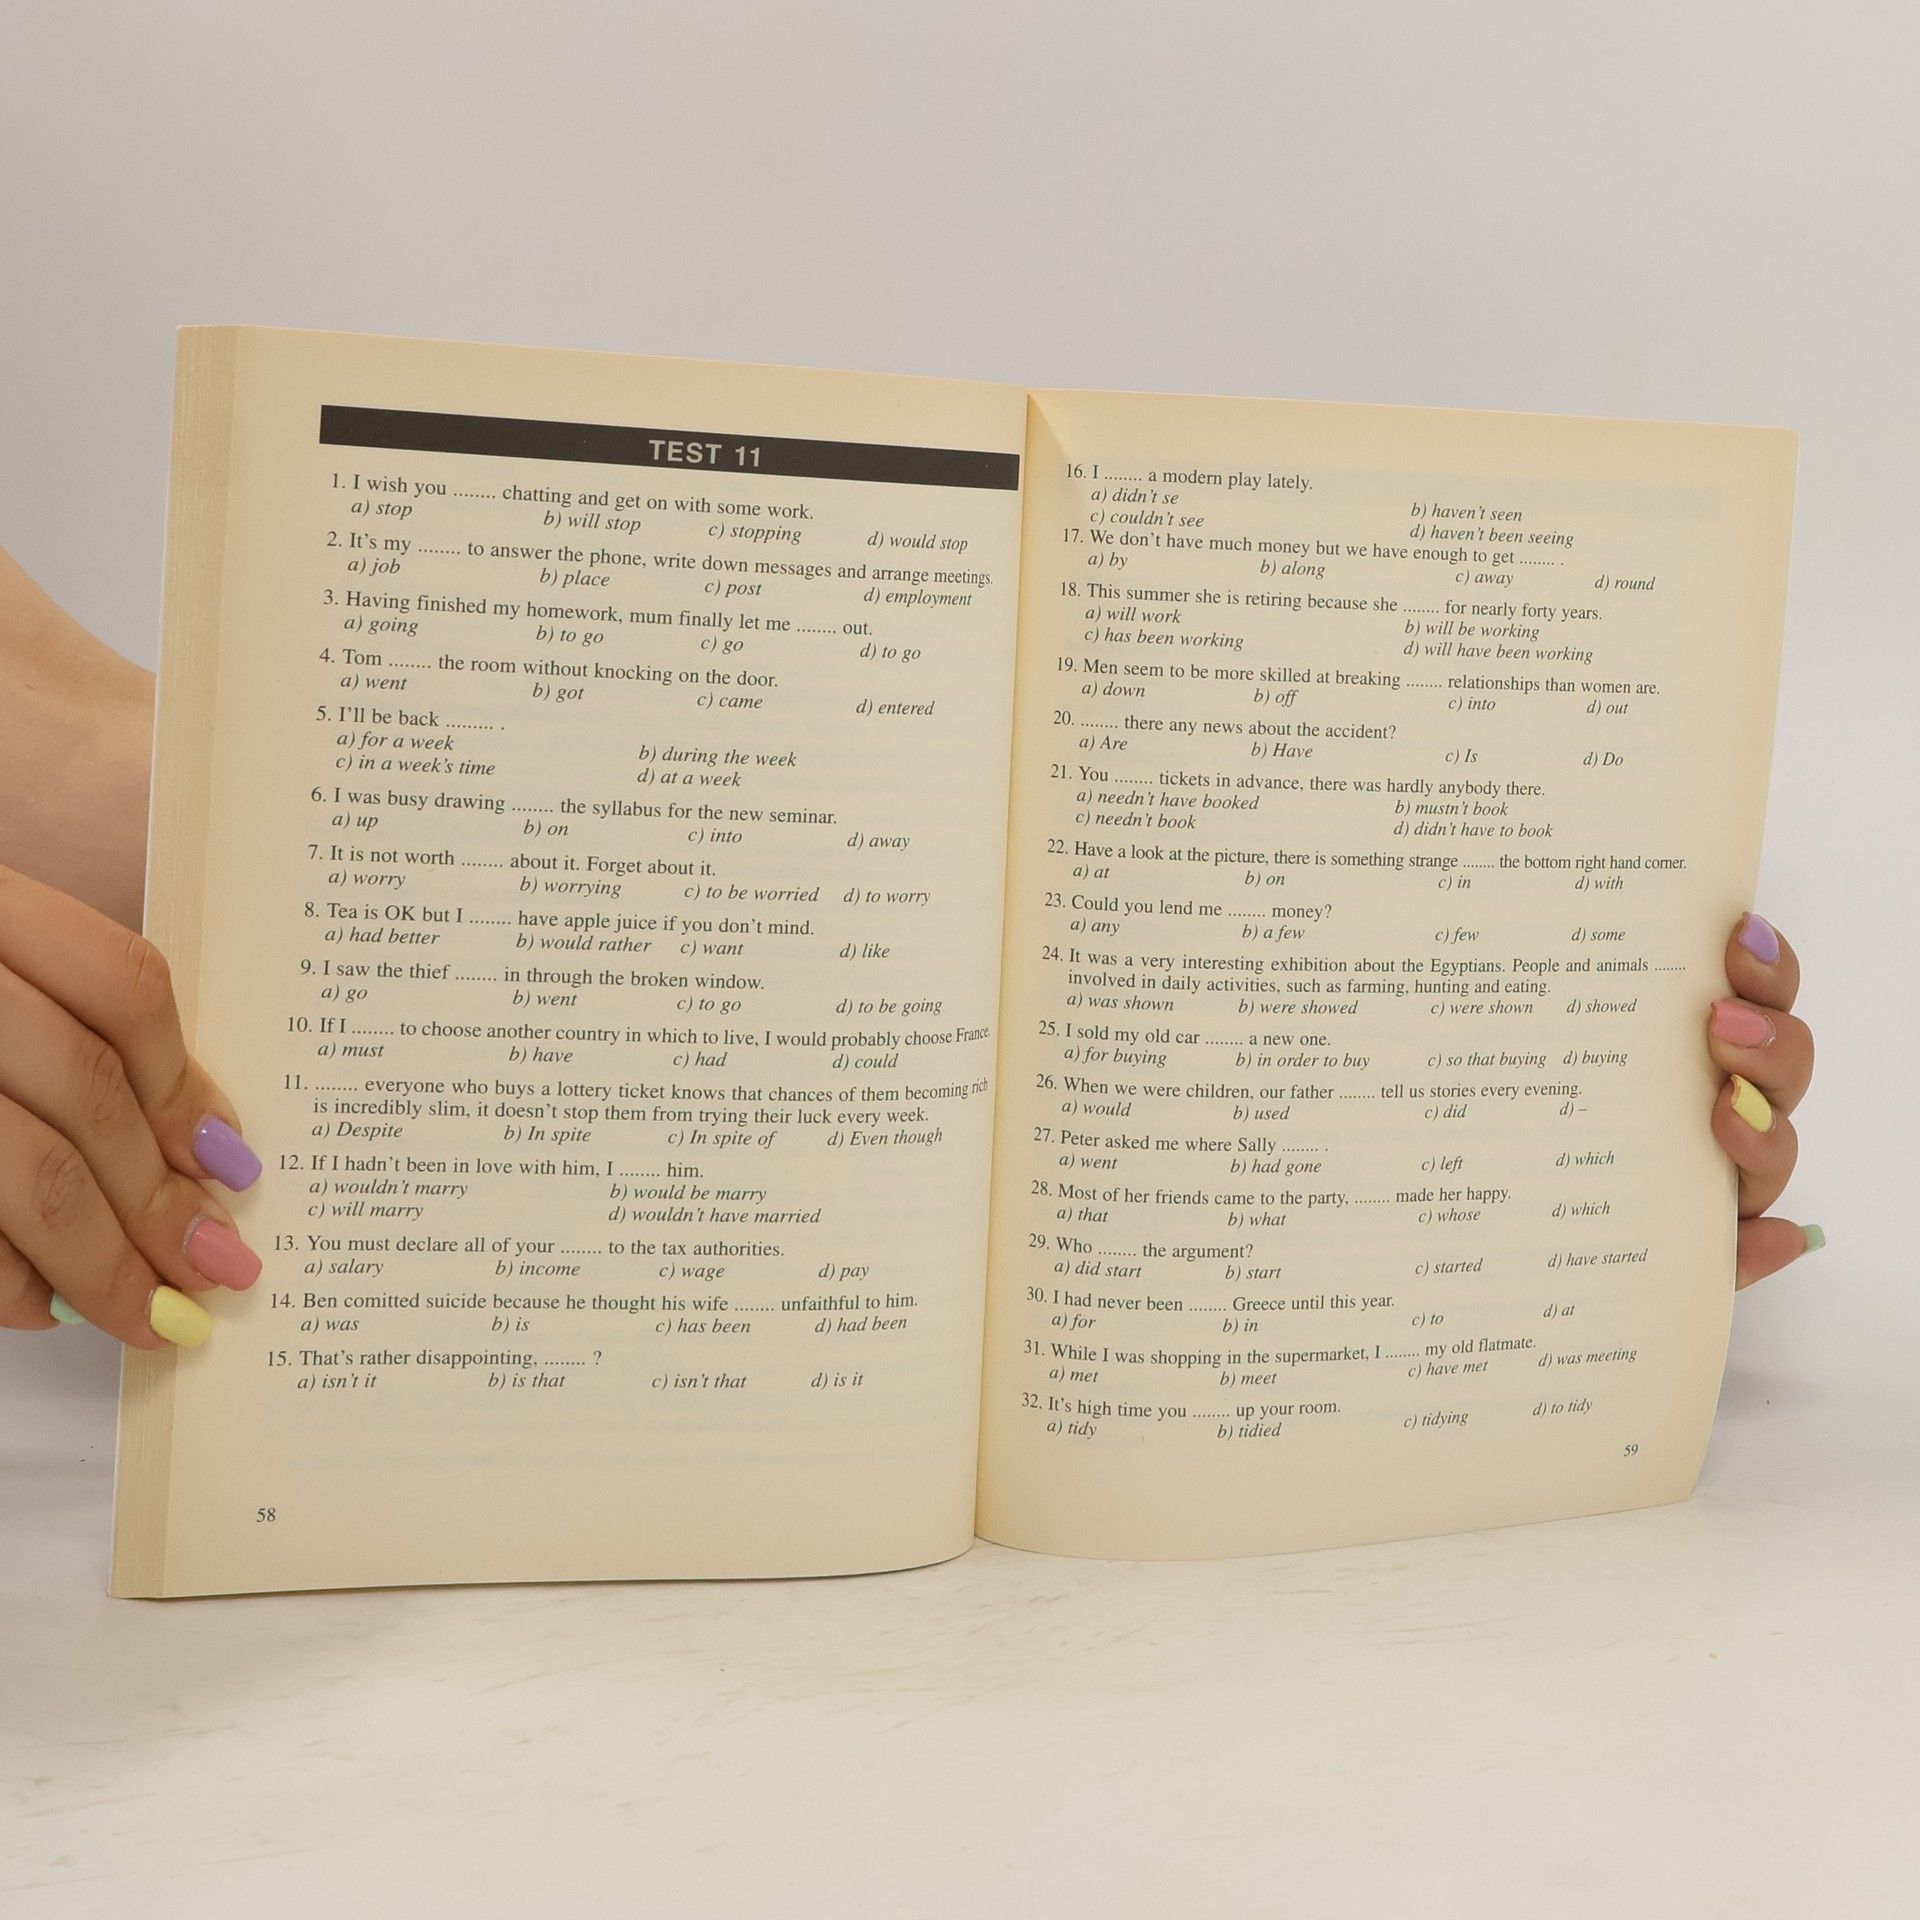 TEST 11
1. I wish you ........ chatting and get on with some work.
a) stop b) will stop c) stopping d) would stop
2. It's my ........ to answer the phone, write down messages and arrange meetings.
a) job b) place c) post d) employment
3. Having finished my homework, mum finally let me ........ out.
a) going b) to go c) go d) to go
4. Tom ........ the room without knocking on the door.
a) went b) got c) came d) entered
5. I'll be back ......... .
a) for a week b) during the week
c) in a week's time d) at a week
6. I was busy drawing ........ the syllabus for the new seminar.
a) up b) on c) into d) away
7. It is not worth ........ about it. Forget about it.
a) worry b) worrying c) to be worried d) to worry
8. Tea is OK but I ........ have apple juice if you don't mind.
a) had better b) would rather c) want d) like
9. I saw the thief ........ in through the broken window.
a) go b) went c) to go d) to be going
10. If I ........ to choose another country in which to live, I would probably choose France.
a) must b) have c) had d) could
11. ........ everyone who buys a lottery ticket knows that chances of them becoming rich
is incredibly slim, it doesn't stop them from trying their luck every week.
a) Despite b) In spite c) In spite of d) Even though
12. If I hadn't been in love with him, I ........ him.
a) wouldn't marry b) would be marry
c) will marry d) wouldn't have married
13. You must declare all of your ........ to the tax authorities.
a) salary b) income c) wage d) pay
14. Ben comitted suicide because he thought his wife ........ unfaithful to him.
a) was b) is c) has been d) had been
15. That's rather disappointing, ........ ?
a) isn't it b) is that c) isn't that d) is it
58
16. I ........ a modern play lately.
a) didn't se b) haven't seen
c) couldn't see d) haven't been seeing
17. We don't have much money but we have enough to get ........ .
a) by b) along c) away d) round
18. This summer she is retiring because she ........ for nearly forty years.
a) will work b) will be working
c) has been working d) will have been working
19. Men seem to be more skilled at breaking ........ relationships than women are.
a) down b) off c) into d) out
20. ........ there any news about the accident?
a) Are b) Have c) Is d) Do
21. You ........ tickets in advance, there was hardly anybody there.
a) needn't have booked b) mustn't book
c) needn't book d) didn't have to book
22. Have a look at the picture, there is something strange ........ the bottom right hand corner.
a) at b) on c) in d) with
23. Could you lend me ........ money?
a) any b) a few c) few d) some
24. It was a very interesting exhibition about the Egyptians. People and animals ........
involved in daily activities, such as farming, hunting and eating.
a) was shown b) were showed c) were shown d) showed
25. I sold my old car ........ a new one.
a) for buying b) in order to buy c) so that buying d) buying
26. When we were children, our father ........ tell us stories every evening.
a) would b) used c) did d) –
27. Peter asked me where Sally ........ .
a) went b) had gone c) left d) which
28. Most of her friends came to the party, ........ made her happy.
a) that b) what c) whose d) which
29. Who ........ the argument?
a) did start b) start c) started d) have started
30. I had never been ........ Greece until this year.
a) for b) in c) to d) at
31. While I was shopping in the supermarket, I ........ my old flatmate.
a) met b) meet c) have met d) was meeting
32. It's high time you ........ up your room.
a) tidy b) tidied c) tidying d) to tidy
59